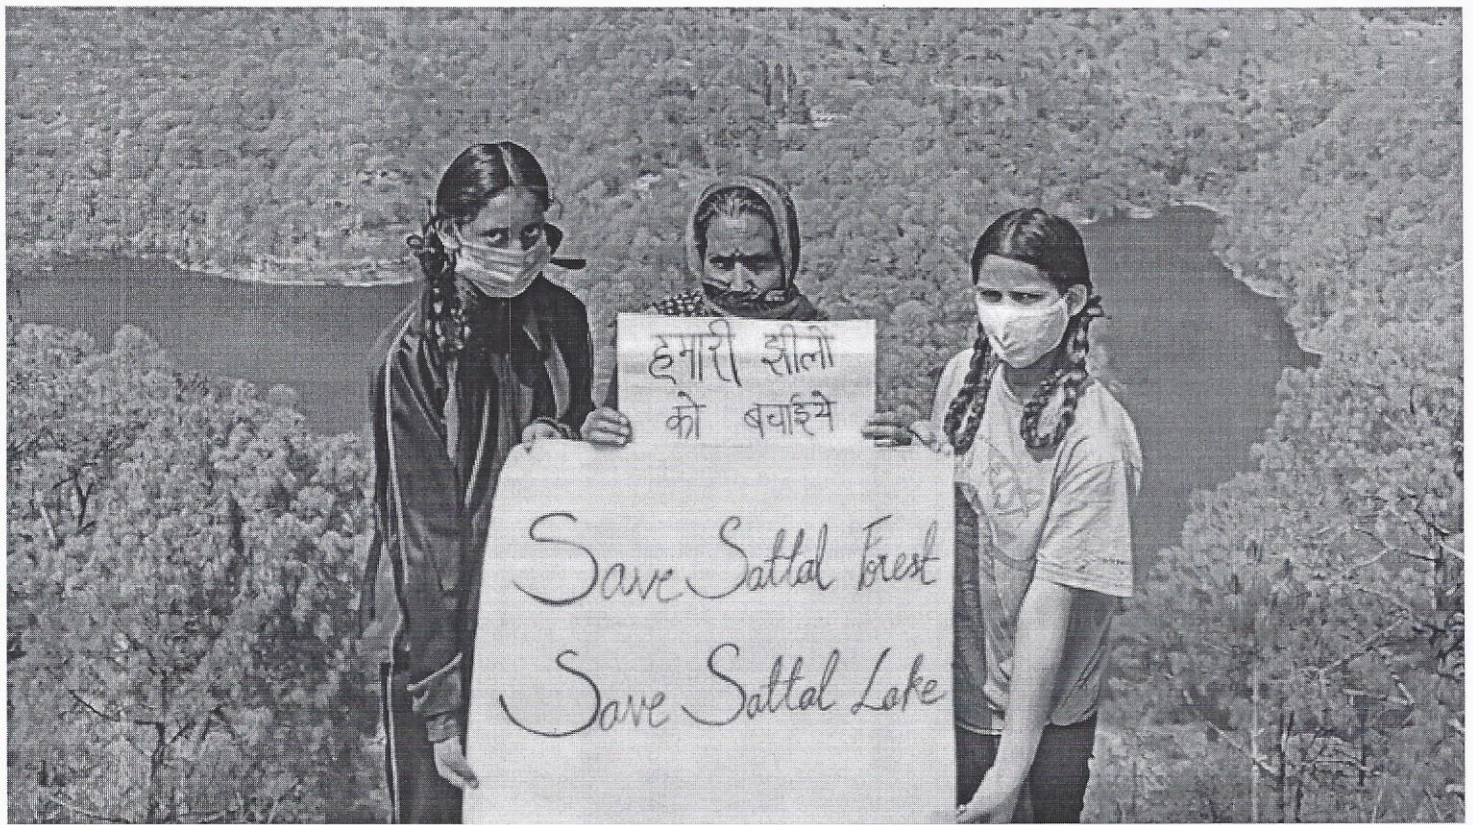 हमारी झीलों
को बचाइये
Save Sattal Forest
Save Sattal Lake